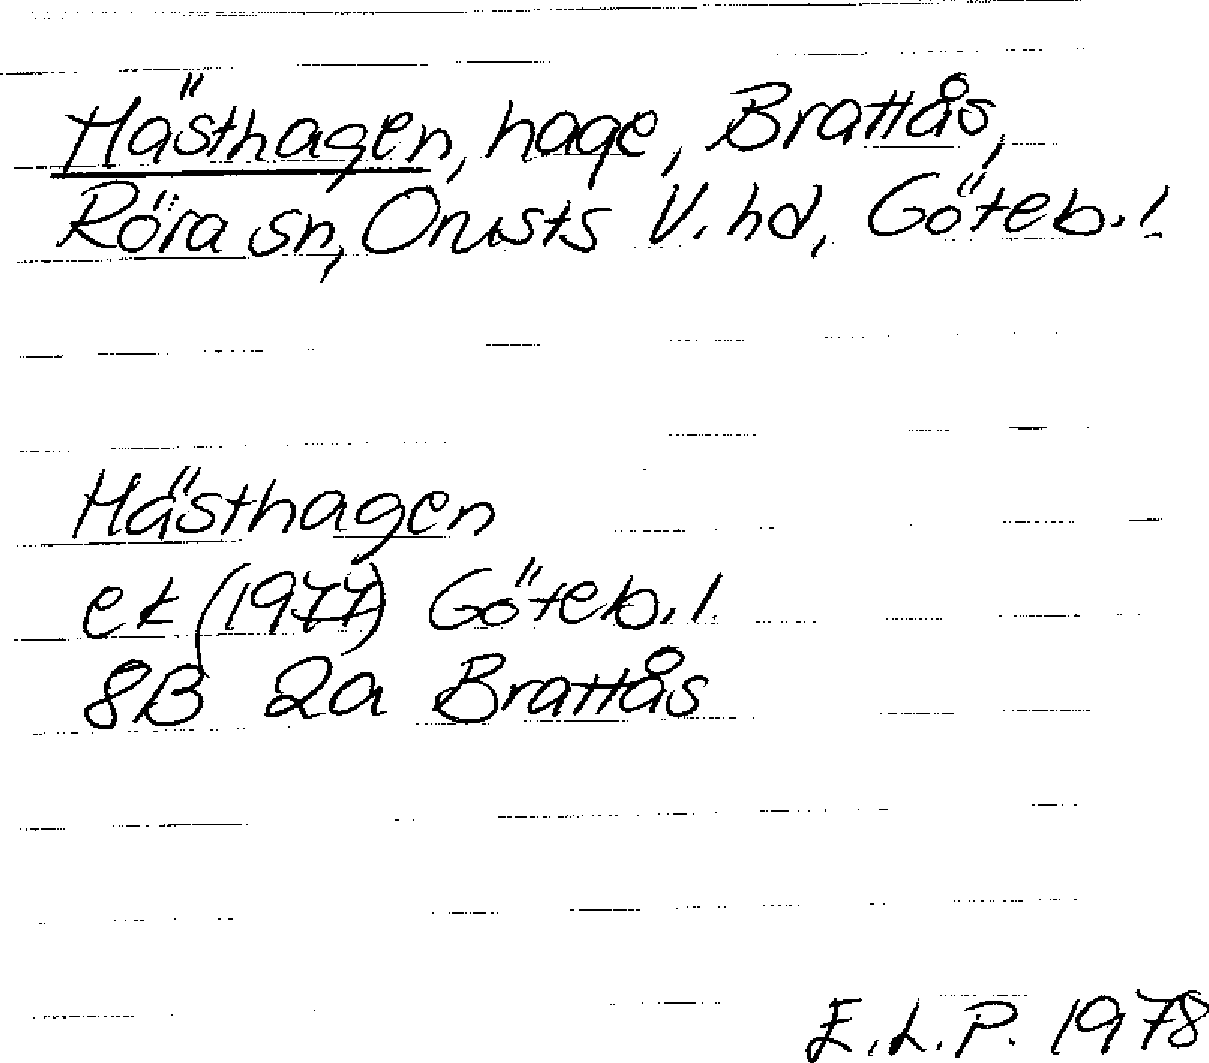 Hästhagen, hage, Brattås,
Röra sn, Orusts V. hd, Göteb. l.
Hästhagen
ek (1977) Göteb. l.
8B 2a Brattås
E.L.P. 1978